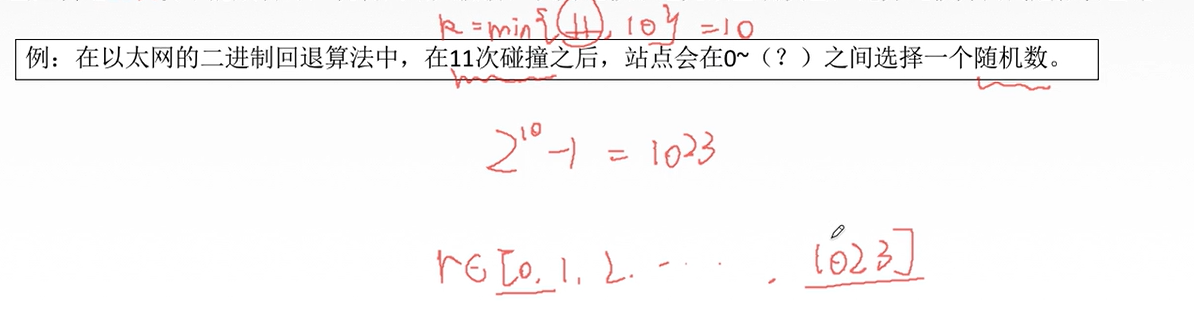 k = min{11, 10} = 10
例：在以太网的二进制回退算法中，在11次碰撞之后，站点会在0~（？）之间选择一个随机数。
2^10 -1 = 1023
r∈[0, 1, 2. ...... . 1023]